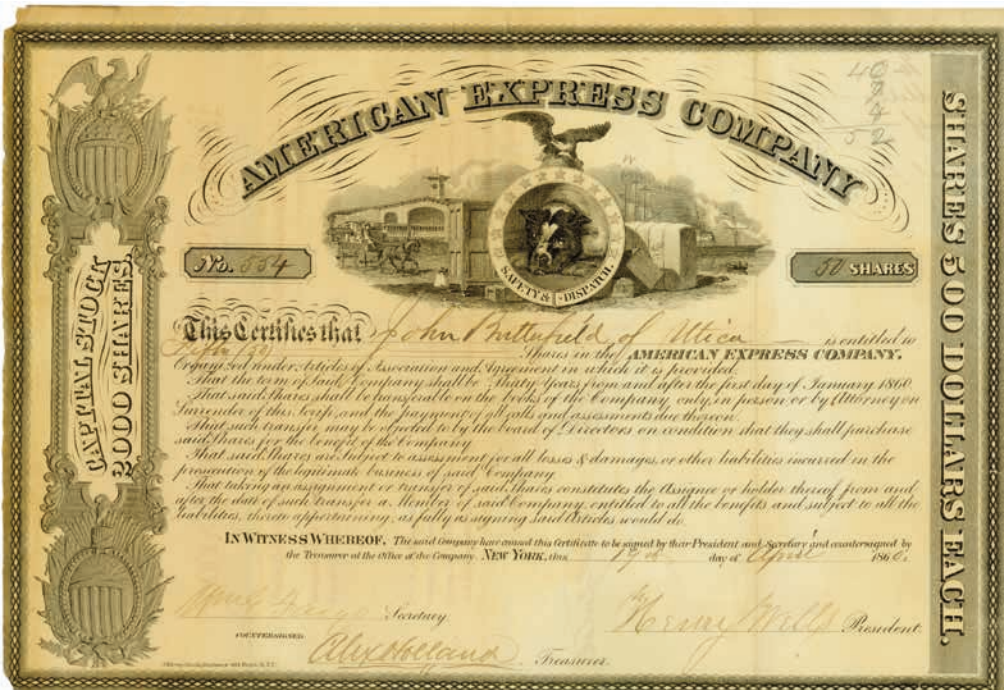 AMERICAN EXPRESS COMPANY
40
8
4
52
SAFETY & DISPATCH
No. 554
50 SHARES
CAPITAL STOCK
SHARES 500 DOLLARS EACH.
This Certifies that John Butterfield of Utica is entitled to
Fifty (50) Shares in the AMERICAN EXPRESS COMPANY.
Organized under Articles of Association and Agreement in which it is provided.
That the term of Said Company shall be Thirty Years from and after the first day of January 1860.
That said Shares shall be transferable on the books of the Company only, in person or by Attorney on
Surrender of this Scrip, and the payment of all calls and assessments due thereon.
That such transfer may be objected to by the board of Directors on condition that they shall purchase
said Shares for the benefit of the Company
That said Shares are Subject to assessment for all losses & damages, or other liabilities incurred in the
prosecution of the legitimate business of said Company
That taking an assignment or transfer of said Shares constitutes the Assignee or holder thereof from and
after the date of such transfer a Member of said Company, entitled to all the benefits and subject to all the
liabilities, thereto appertaining, as fully as signing said Articles would do.
IN WITNESS WHEREOF, The said Company have caused this Certificate to be signed by their President and Secretary and countersigned by
the Treasurer at the Office of the Company. NEW YORK, this day of April 1860.
Secretary. Henry Wells President.
COUNTERSIGNED.
Alex Holland Treasurer.